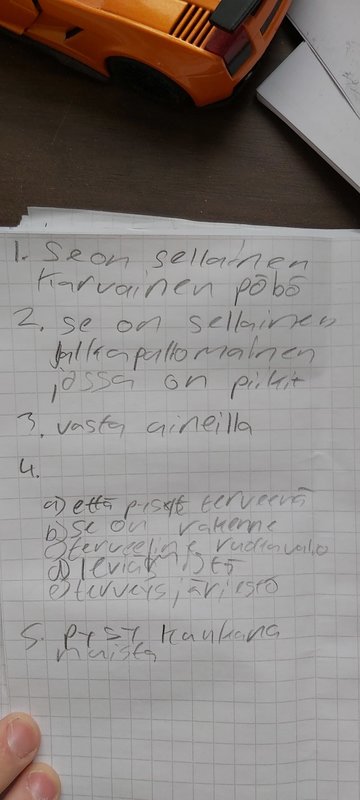 1. Se on sellainen
karvainen pöbö
2. se on sellainen
jalkapallomainen
jossa on piikit
3. vasta aineilla
4.
a) että pysyt terveenä
b) se on rakenne
c) terveelline ruokavalio
d) leviämistä
e) terveys järjestö
5. pysy kaukana
muista